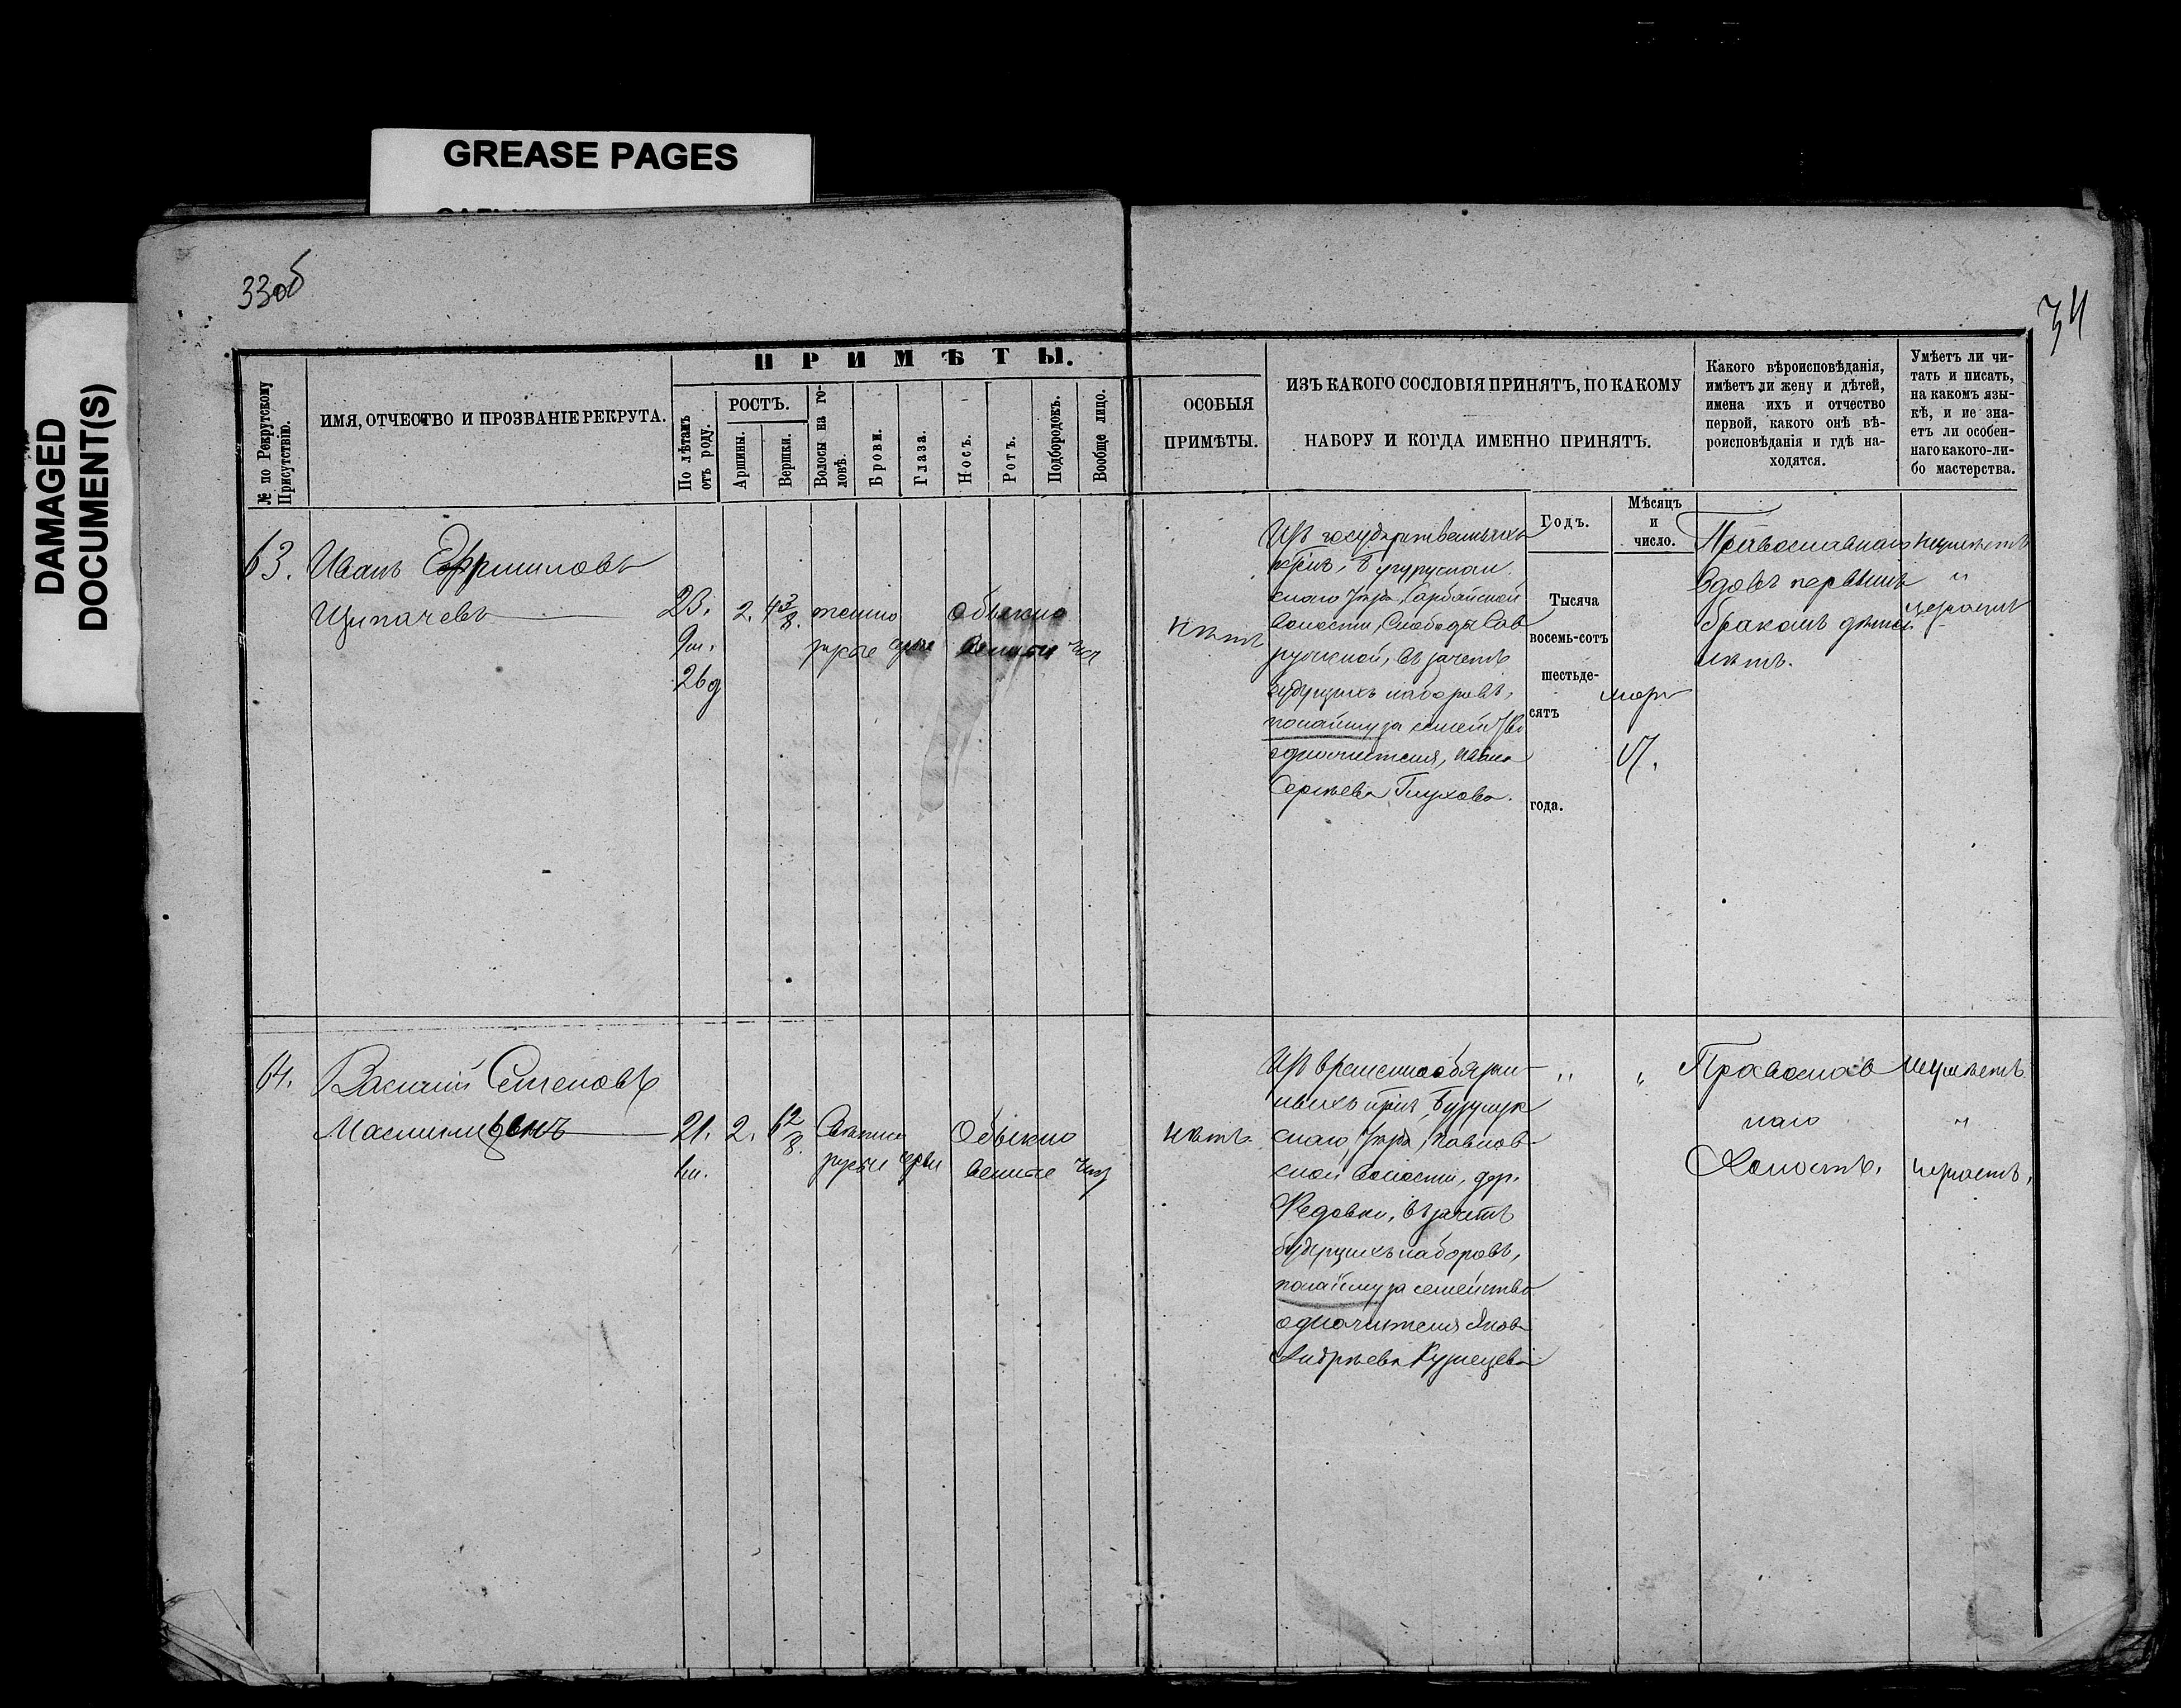 GREASE PAGES
DAMAGED
DOCUMENT(S)
33об
34
ПРИМѢТЫ.
№ по Рекрутскому
Присутствію.
ИМЯ, ОТЧЕСТВО И ПРОЗВАНІЕ РЕКРУТА.
По лѣтамъ
отъ роду.
РОСТЪ.
Аршины.
Вершки.
Волосы на го-
ловѣ.
Брови.
Глаза.
Носъ.
Ротъ.
Подбородокъ.
Вообще лицо.
ОСОБЫЯ
ПРИМѢТЫ.
ИЗЪ КАКОГО СОСЛОВІЯ ПРИНЯТЪ, ПО КАКОМУ
НАБОРУ И КОГДА ИМЕННО ПРИНЯТЪ.
Какого вѣроисповѣданія,
имѣетъ ли жену и дѣтей,
имена ихъ и отчество
первой, какого онѣ вѣ-
роисповѣданія и гдѣ на-
ходятся.
Умѣетъ ли чи-
тать и писать,
на какомъ язы-
кѣ, и не зна-
етъ ли особен-
наго какого-ли-
бо мастерства.
Годъ.
Мѣсяцъ
и
число.
63.
Иванъ Ефримовъ
Щипачевъ
23.
9м.
26д
2.
4 3/8.
темно
русые
сѣрые
Обыкно
венные
чис
нѣтъ
Изъ государственныхъ
крѣс, Бугуруслан
скаго уѣзда, Сарбайской
волости, Слободы Сав
рушской, въ зачетъ
будущихъ наборовъ,
понайму за семейство
одночителя, Ивана
Сергѣева Глухова.
Тысяча
восемь-сотъ
шестьде-
сятъ
года.
март
17.
Православнаго
вдовъ первымъ
бракомъ дѣтей
нѣтъ.
неумѣетъ
"
незнаетъ
64.
Василий Семеновъ
21.
2.
6 2/8.
Свѣтло
русые
сѣрые
Обыкно
венные
чис
нѣтъ.
Изъ временнообязан-
ныхъ крѣс Бузулук
скаго уѣзда, Павлов-
ской волости, дер.
Федовки, въ зачетъ
будущихъ наборовъ,
понайму за семейство
одночителя Якова
Андрѣева Кузнецова
"
"
Православ
наго
Холостъ.
Неумѣетъ.
"
незнаетъ.